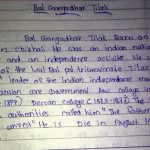 Bal Gangadhar Tilak
Bal Gangadhar Tilak Born an
in chikhali. He was an indian natio
and an independence activist. He
of the Lal Bal pal triumvirate Tilak
leader of the Indian independence mo
ucation are government law college in
Deccan college (1873-1877). The
authorities called him "The father
unrest" He is Die in August 1